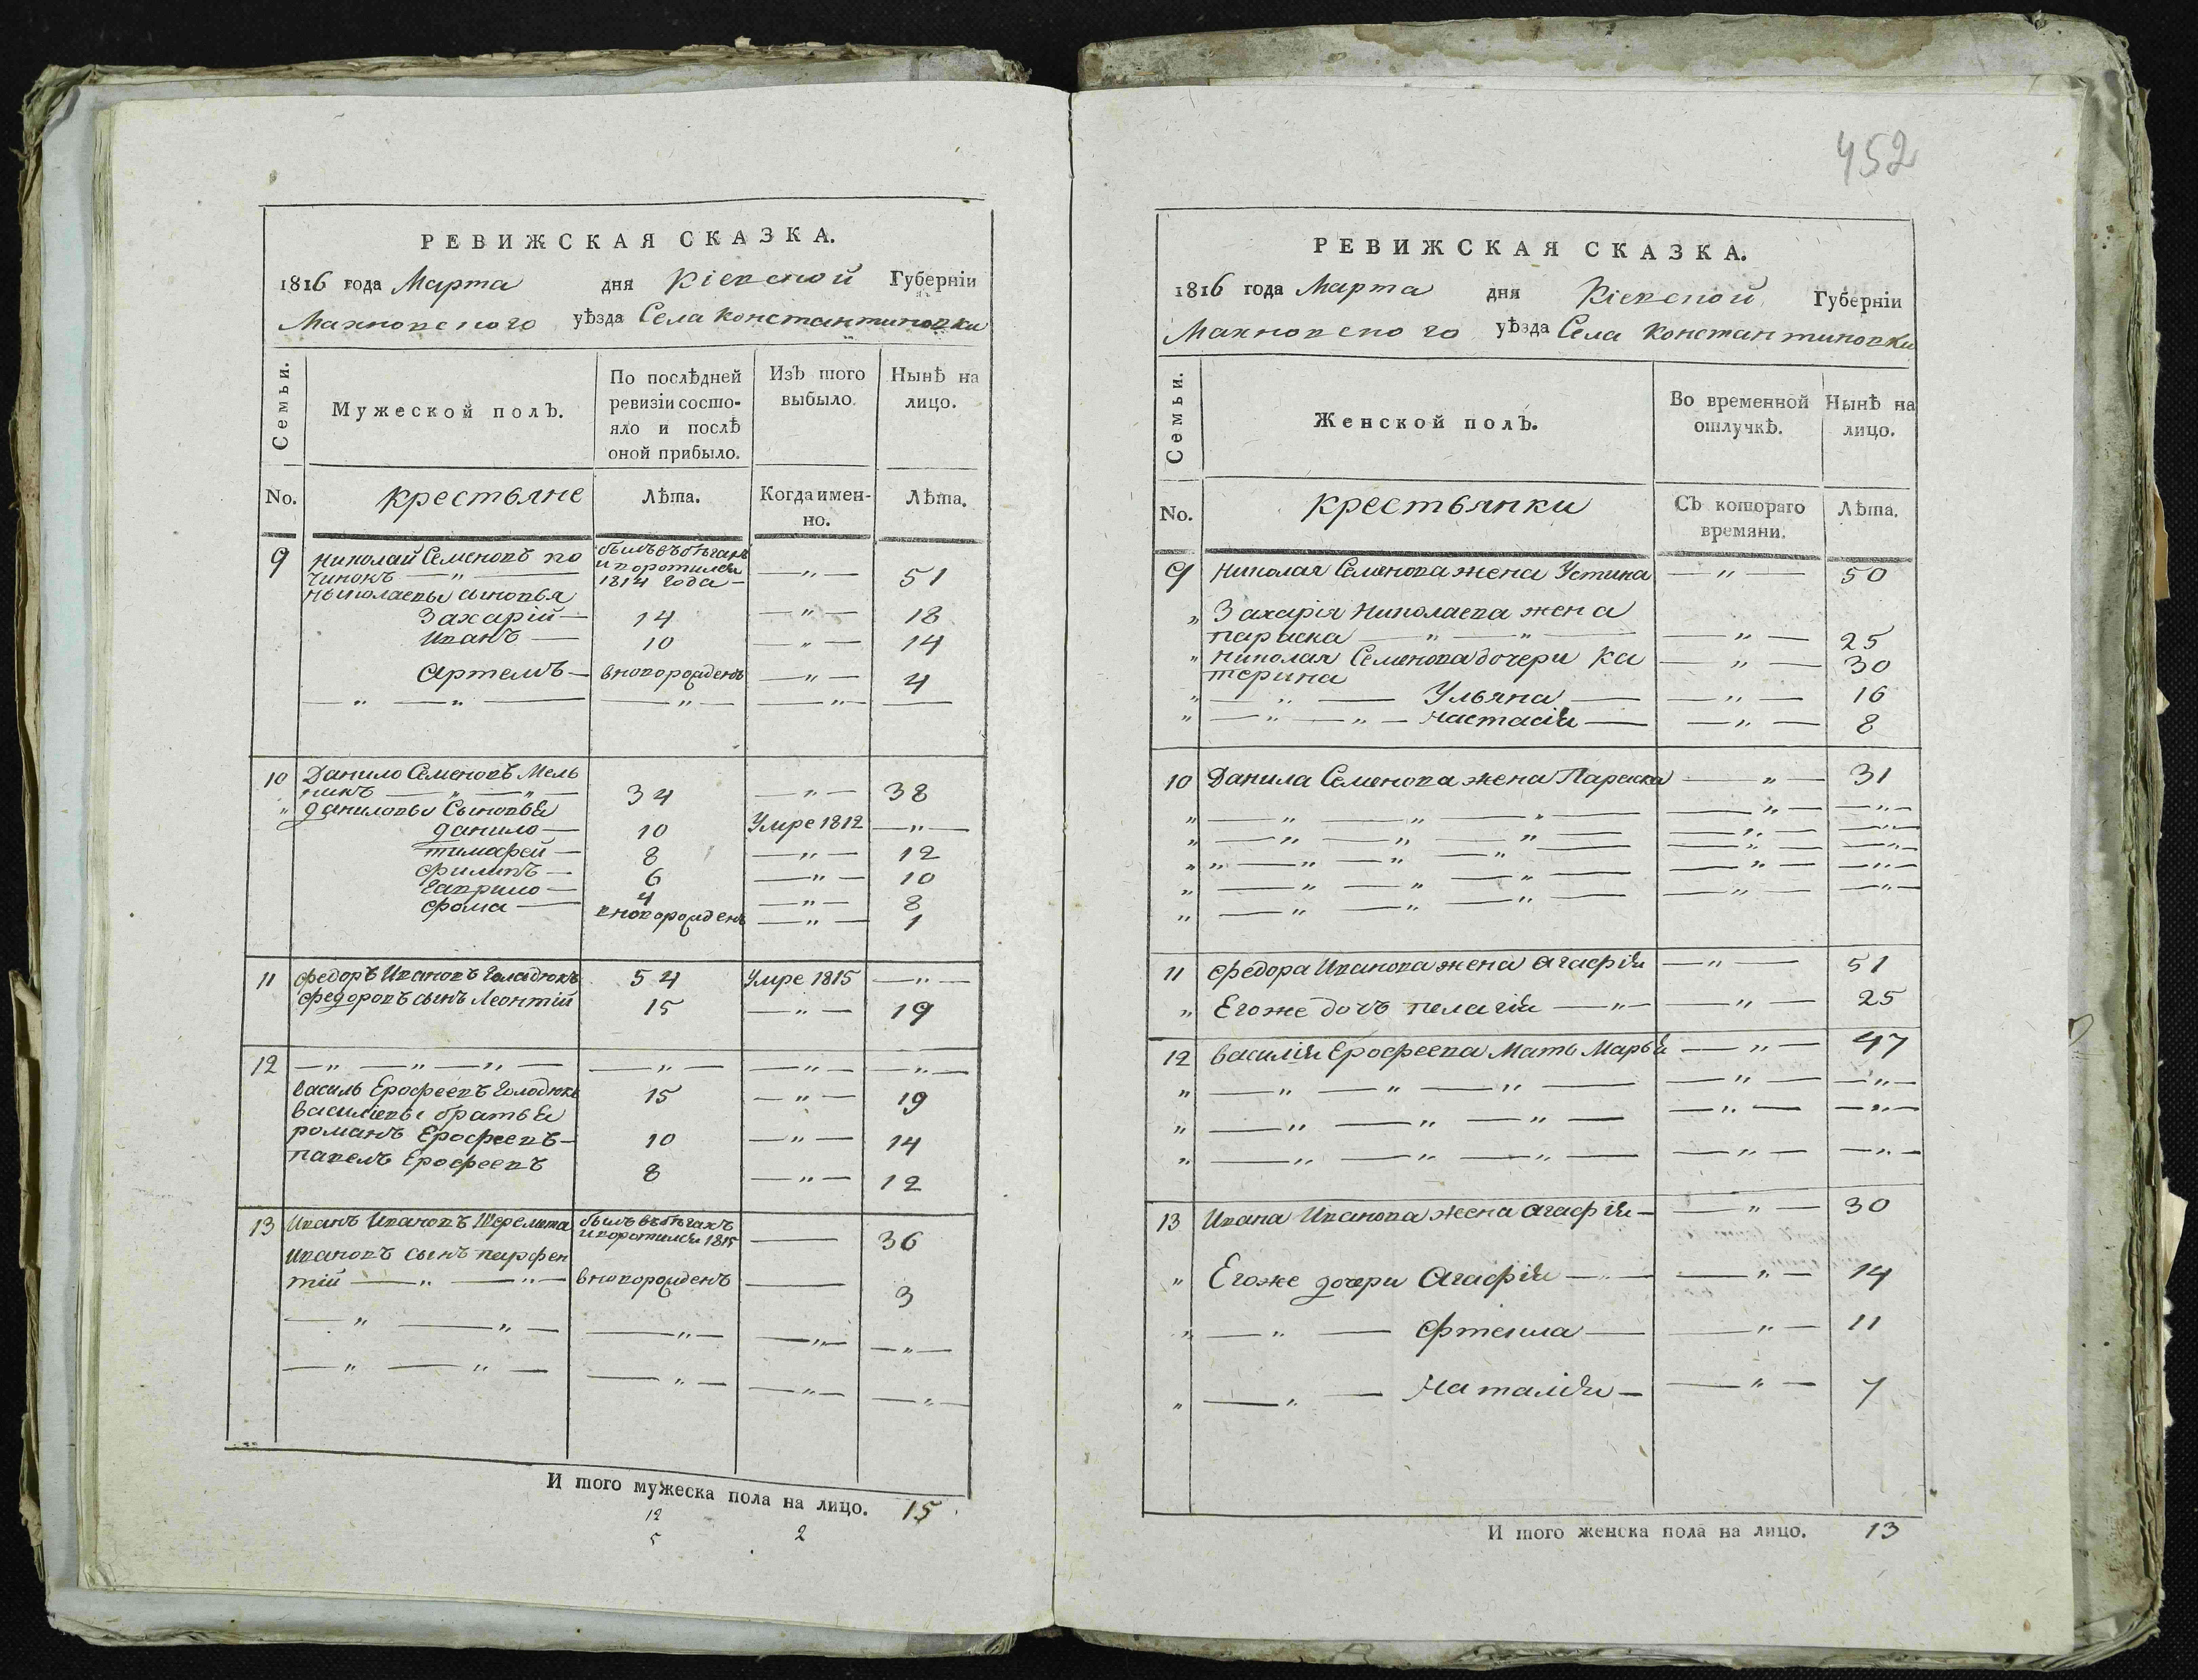 РЕВИЖСКАЯ СКАЗКА.
1816 года Марта дня Кіевской Губерніи
Махновского уѣзда Села Константиновки
Семьи.
Мужеской полъ.
По послѣдней ревизіи состояло и послѣ оной прибыло.
Изъ того выбыло.
Нынѣ на лицо.
No. крестьяне Лѣта. Когда именно. Лѣта.
9 Николай Семеновъ по был въ бѣгахъ
чинокъ — „ — и воротился — „ — 51
1814 года —
Николаевы сыновья
Захарій — 14 — „ — 18
Иванъ — 10 — „ — 14
Артемъ — вноворожденъ — „ — 4
— „ — „ — — „ — — „ — —
10 Данило Семеновъ Мель
никъ — „ — „ — 34 — „ — 38
„ Даниловы Сыновья
Данило — 10 Умре 1812 — „ —
тимофей — 8 — „ — 12
филипъ — 6 — „ — 10
Гаврило — 4 — „ — 8
фома — вноворожденъ — „ — 1
11 Федоръ Ивановъ Голадюкъ 54 Умре 1815 — „ —
Федоровъ сынъ Леонтій 15 — „ — 19
12 — „ — „ — „ — — „ — — „ — — „ —
Василь Ерофеевъ Голодюкъ 15 — „ — 19
Василіевы братья
романъ Ерофеевъ — 10 — „ — 14
павелъ Ерофеевъ 8 — „ — 12
13 Иванъ Ивановъ Шеремета былъ въ бѣгахъ
и воротился 1815 — 36
Ивановъ сынъ парфен
тій — „ — „ — вноворожденъ — 3
— „ — „ — — „ — — „ — — „ —
— „ — „ — — „ — — „ — — „ —
И того мужеска пола на лицо. 15
12
5 2
452
РЕВИЖСКАЯ СКАЗКА.
1816 года Марта дня Кіевской Губерніи
Махновского уѣзда Села Константиновки
Семьи.
Женской полъ.
Во временной отлучкѣ.
Нынѣ на лицо.
No. крестьянки Съ котораго времяни. Лѣта.
9 Николая Семенова жена Устина — „ — 50
„ Захарія Николаева жена
параска — „ — „ — — „ — 25
„ Николая Семенова дочери Ка — „ — 30
терина
„ — „ — Ульяна — — „ — 16
„ — „ — „ — Настасія — — „ — 8
10 Данила Семенова жена Параска — „ — 31
„ — „ — „ — „ — — „ — — „ —
„ — „ — „ — „ — — „ — — „ —
„ „ — „ — „ — „ — — „ — — „ —
„ — „ — „ — „ — — „ — — „ —
„ — „ — „ — „ — — „ — — „ —
11 Федора Иванова жена Агафія — „ — 51
„ Егоже дочъ пелагія — „ — — „ — 25
12 Василія Ерофеева Мать Марья — „ — 47
„ — „ — „ — „ — — „ — — „ —
„ — „ — „ — „ — — „ — — „ —
„ — „ — „ — „ — — „ — — „ —
13 Ивана Иванова жена Агафія — — „ — 30
„ Егоже дочери Агафія — „ — — „ — 14
„ — „ — — „ — 11
„ — „ — Наталія — — „ — 7
И того женска пола на лицо. 13